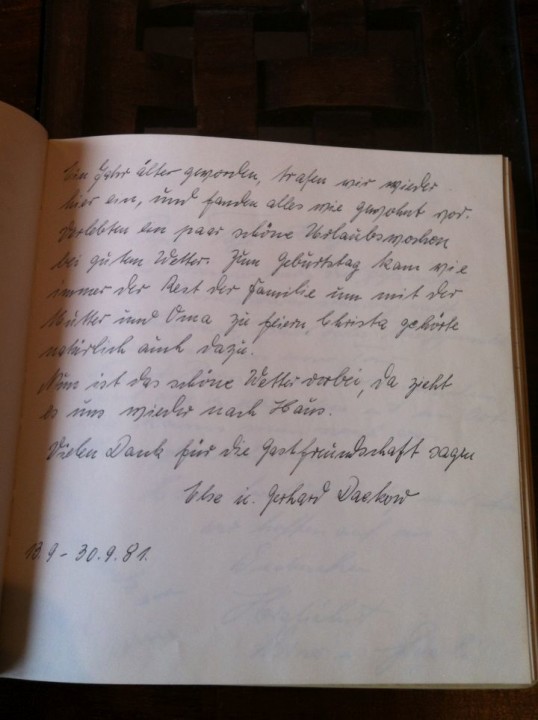 Ein Jahr älter geworden, trafen wir wieder
hier ein, und fanden alles wie gewohnt vor.
Verlebten ein paar schöne Urlaubswochen
bei gutem Wetter. Zum Geburtstag kam wie
immer der Rest der Familie um mit der
Mutter und Oma zu feiern, Christa gehörte
natürlich auch dazu.
Nun ist das schöne Wetter vorbei, da zieht
es uns wieder nach Haus.
Vielen Dank für die Gastfreundschaft sagen
Else u. Gerhard
13.9 - 30.9.81.